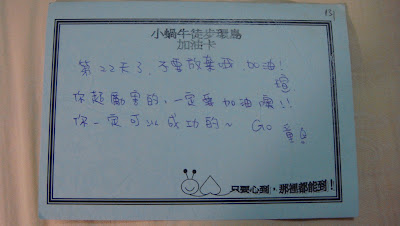 小蝸牛徒步環島
加油卡
第22天了,不要放棄哦,加油!
你超勵害的,一定要加油喔!!
你一定可以成功的~ Go
只要心到,那裡都能到!